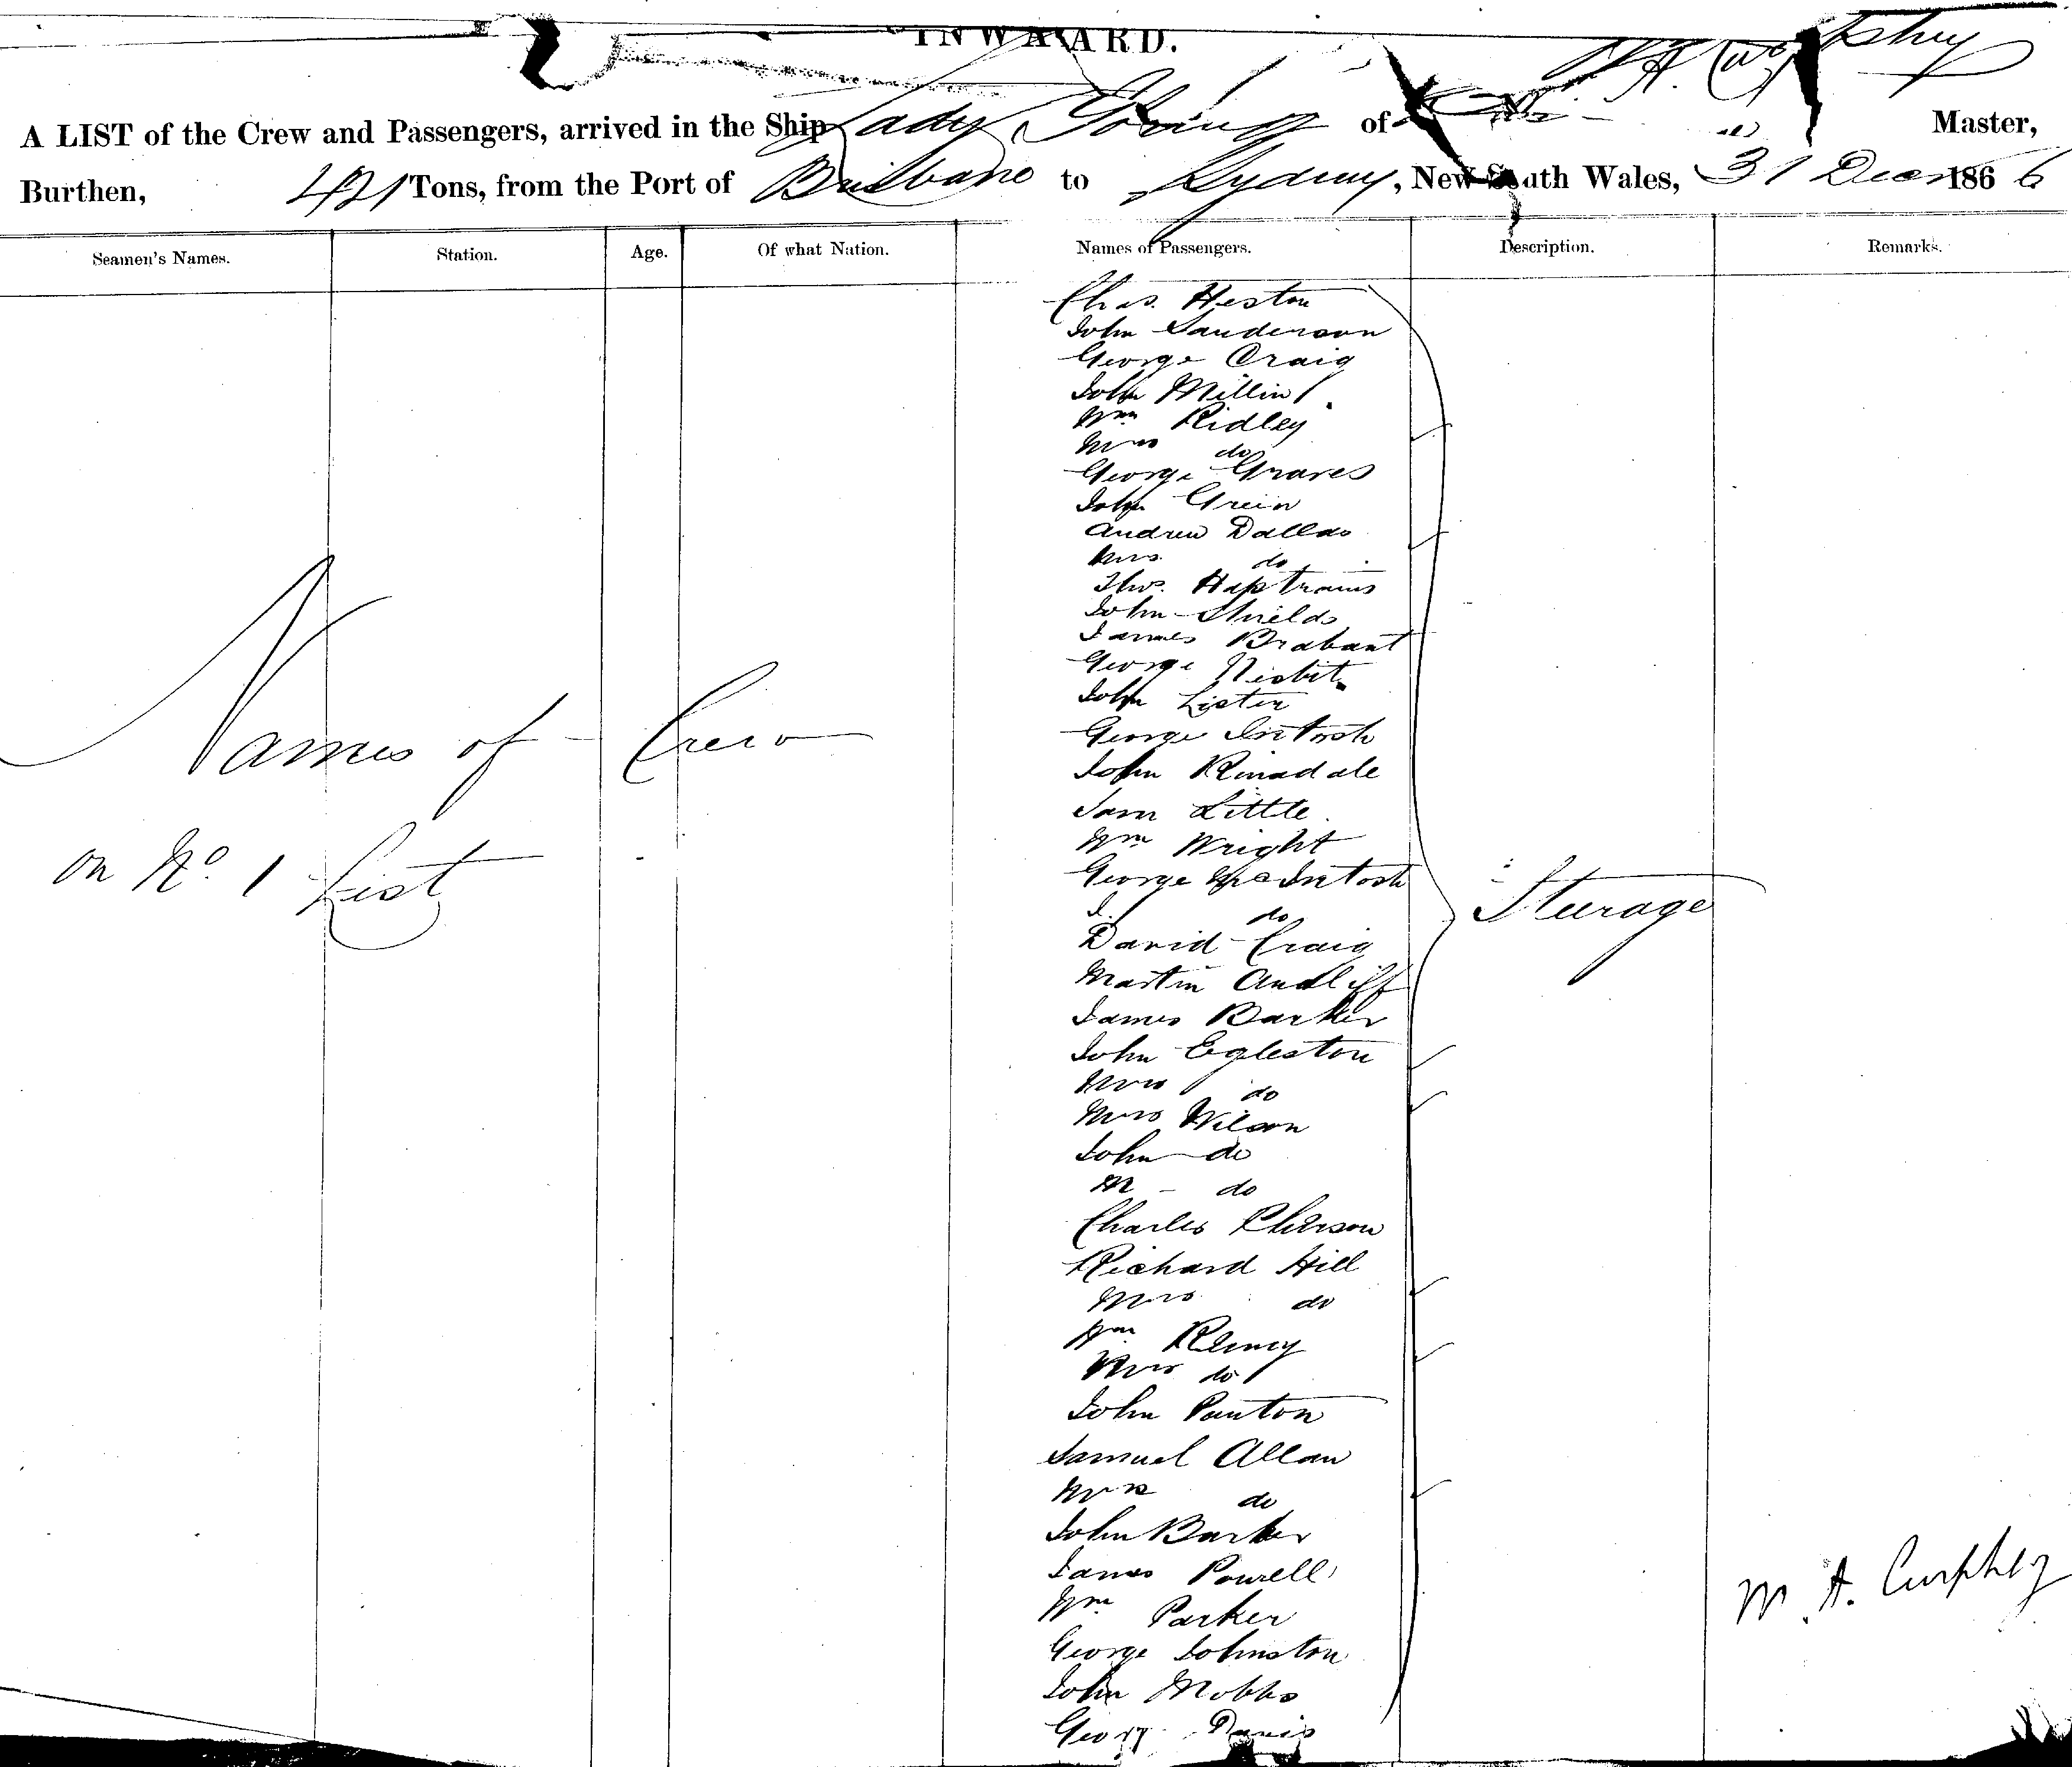 INWARD.
A LIST of the Crew and Passengers, arrived in the Ship Lady Young of
Master,
Burthen, 421 Tons, from the Port of Brisbane to Sydney, New South Wales, 31 Decr 1866
Seamen's Names. Station. Age. Of what Nation. Names of Passengers. Description. Remarks.
Chas. Heston
John Sanderson
George Craig
John Millin
Wm Ridley
Mrs do
George Graves
John Green
Andrew Dallas
Mrs do
Thos.
John Shields
James Brabant
George Nisbit
John Lister
George Intosh
John
Sam Little
Wm Wright
George McIntosh
J. do
David Craig
Martin
James Barker
John Egleston
Mrs do
Mrs Wilson
John do
M - do
Charles
Richard Hill
Mrs do
Wm
Mrs do
John Panton
Samuel Allan
Mrs do
John Barker
James Powell
Wm Parker
George Johnston
John Mobbs
George Davis
Names of Crew
on No. 1 List
Steerage
M. A. Curphey